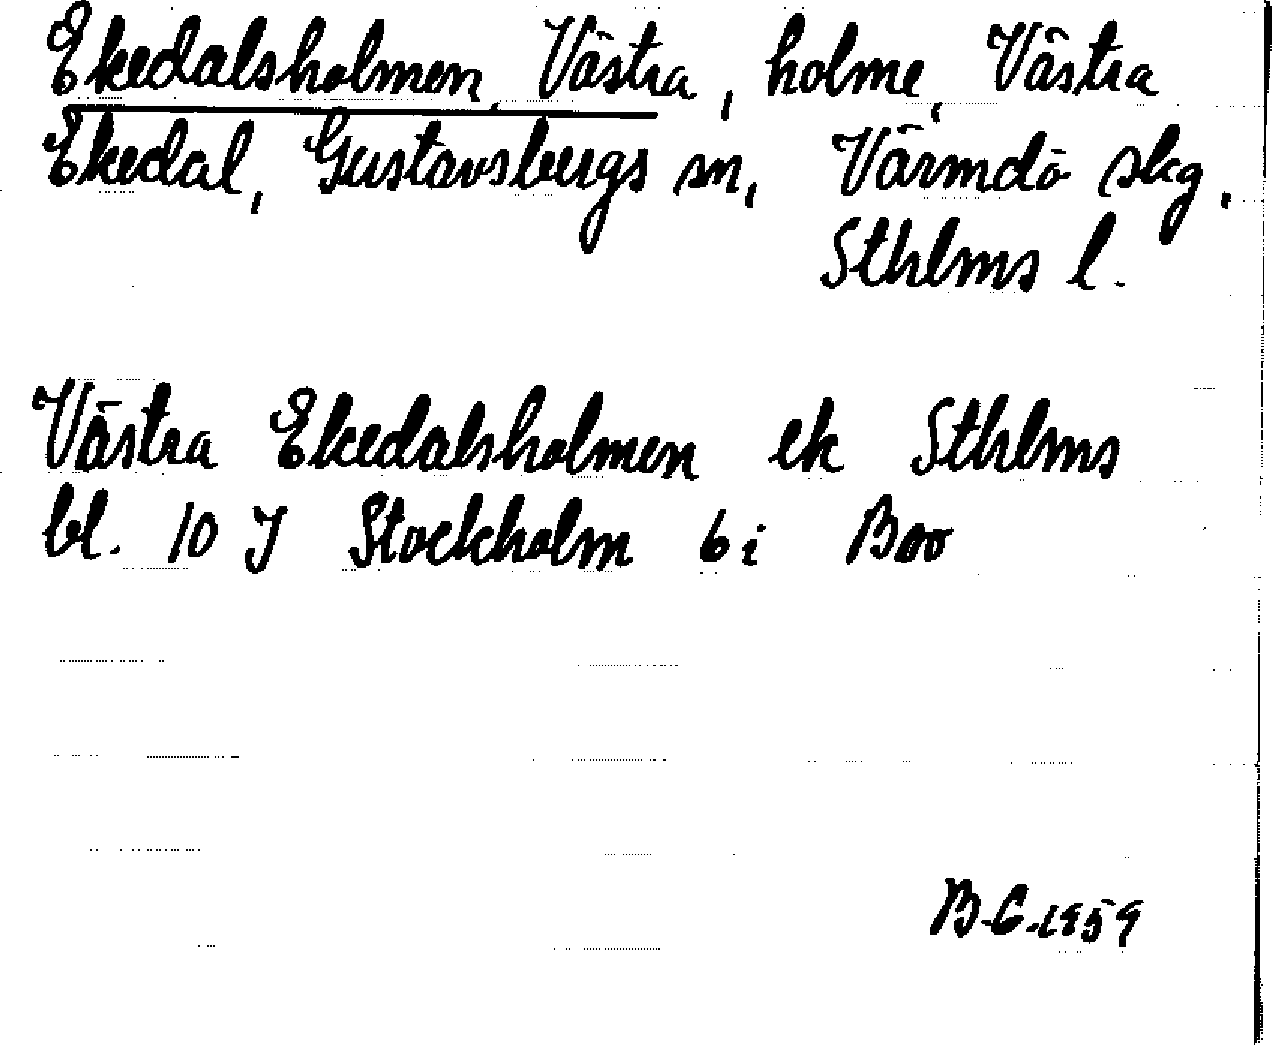 Ekedalsholmen, Västra, holme, Västra
Ekedal, Gustavsbergs sn, Värmdö skg,
Sthlms l.
Västra Ekedalsholmen ek Sthlms
bl. 10 J Stockholm 6 i Boo
B.C. 1959